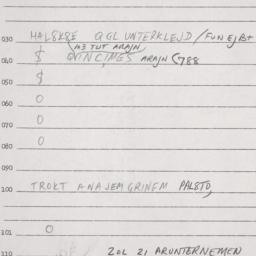 030 HALSKSE QGL UNTERKLEJD / FUNEJB+
M3 TUT ARAJN
040 $ QVINCIMES ARAJN 788
050 $
060 O
070 O
080 O
090
100 TROKT ANAJEM GRINEM PALSTO,
101 O
110 ZOL ZI ARUNTERNEMEN